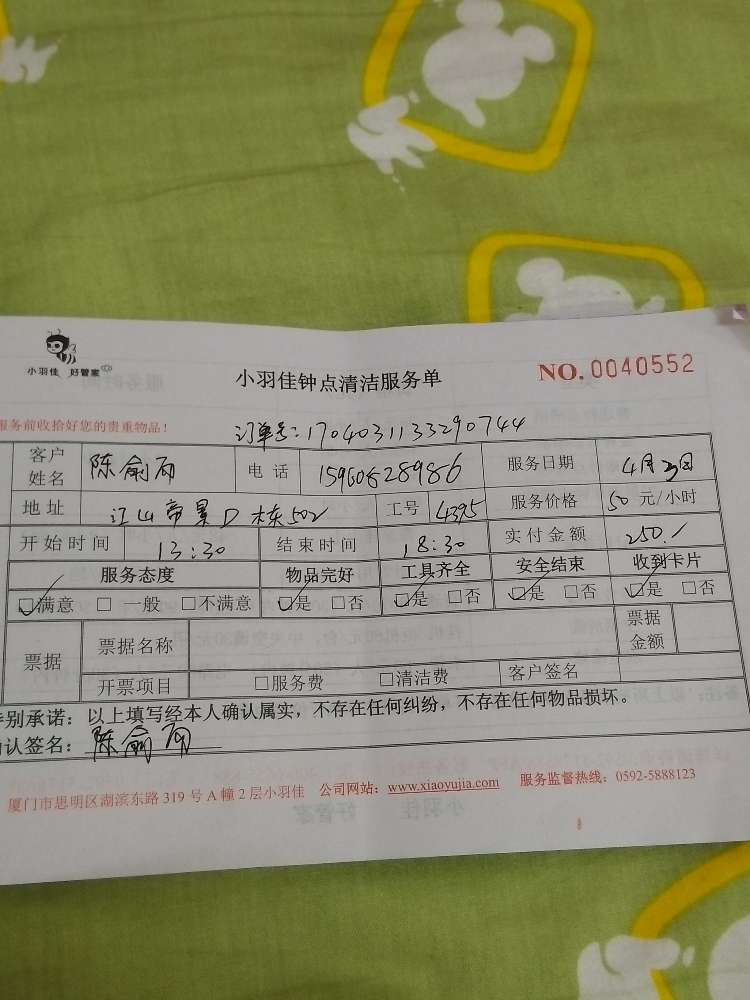 小羽佳 好管家
小羽佳钟点清洁服务单
NO. 0040552
服务前收拾好您的贵重物品！
订单号：1704031133290744
客户姓名 陈俞雨 电话 15960828986 服务日期 4月3日
地址 江山帝景D栋502 工号 4395 服务价格 50 元/小时
开始时间 13:30 结束时间 18:30 实付金额 250./
服务态度 物品完好 工具齐全 安全结束 收到卡片
☑满意 □ 一般 □不满意 ☑是 □否 ☑是 □否 ☑是 □否 ☑是 □否
票据 票据名称 票据金额
开票项目 □服务费 □清洁费 客户签名
特别承诺：以上填写经本人确认属实，不存在任何纠纷，不存在任何物品损坏。
确认签名：陈俞雨
厦门市思明区湖滨东路 319 号 A 幢 2 层小羽佳 公司网站：www.xiaoyujia.com 服务监督热线：0592-5888123